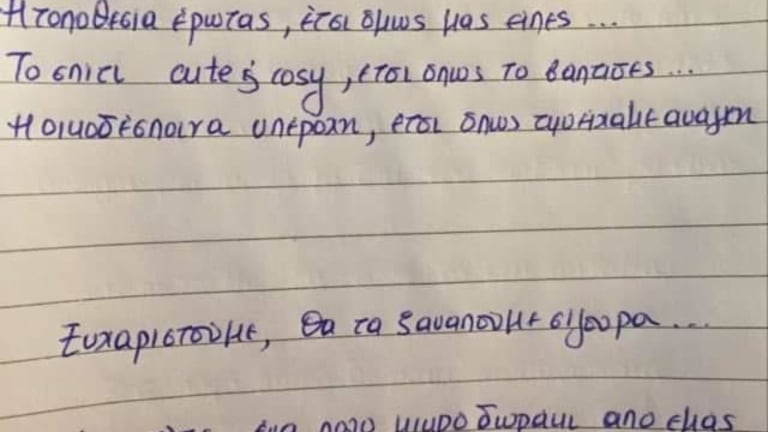 Η τοποθεσία έρωτας, έτσι όμως μας είπες ...
Το σπίτι cute & cosy, έτσι όπως το βάπτισες ...
Η οικοδέσποινα υπέροχη, έτσι όπως είχαμε ανάγκη
Ευχαριστούμε, θα τα ξαναπούμε σίγουρα ...
ένα πολύ μικρό δωράκι από εμάς